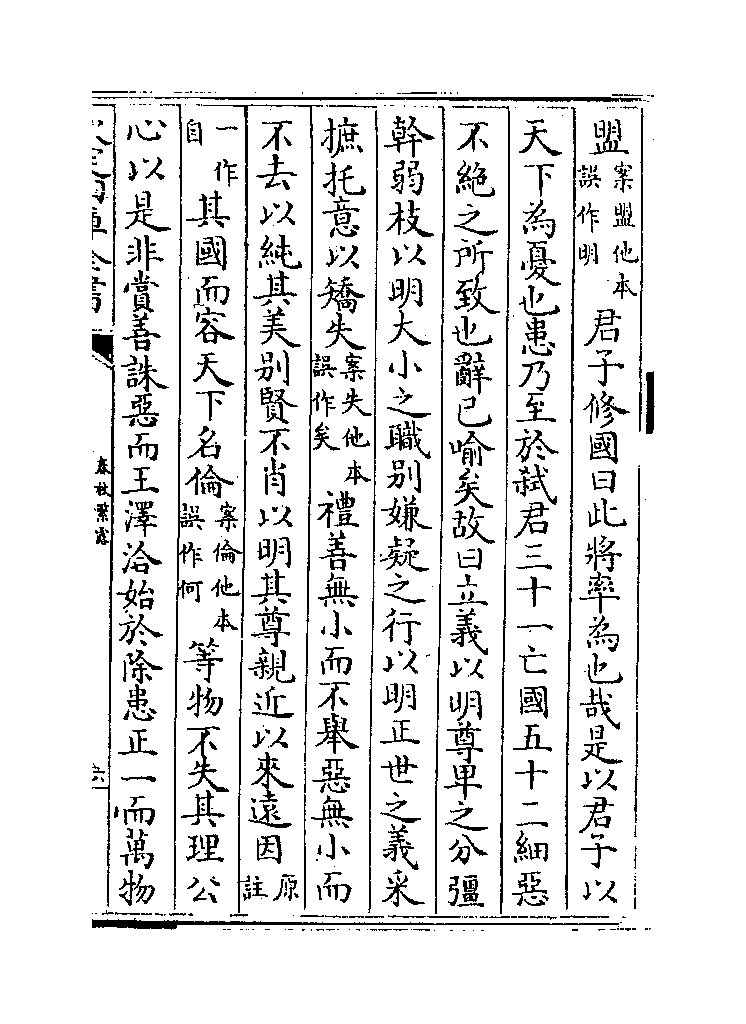 盟案盟他本誤作明君子修國曰此將率為也哉是以君子以
天下為憂也患乃至於弑君三十一亡國五十二細惡
不絶之所致也辭已喻矣故曰立義以明尊卑之分彊
幹弱枝以明大小之職别嫌疑之行以明正世之義采
摭托意以矯失案失他本誤作矣禮善無小而不舉惡無小而
不去以純其美别賢不肖以明其尊親近以來遠因原註
一作自其國而容天下名倫案倫他本誤作何等物不失其理公
心以是非賞善誅惡而王澤洽始於除患正一而萬物
春秋繁露
六